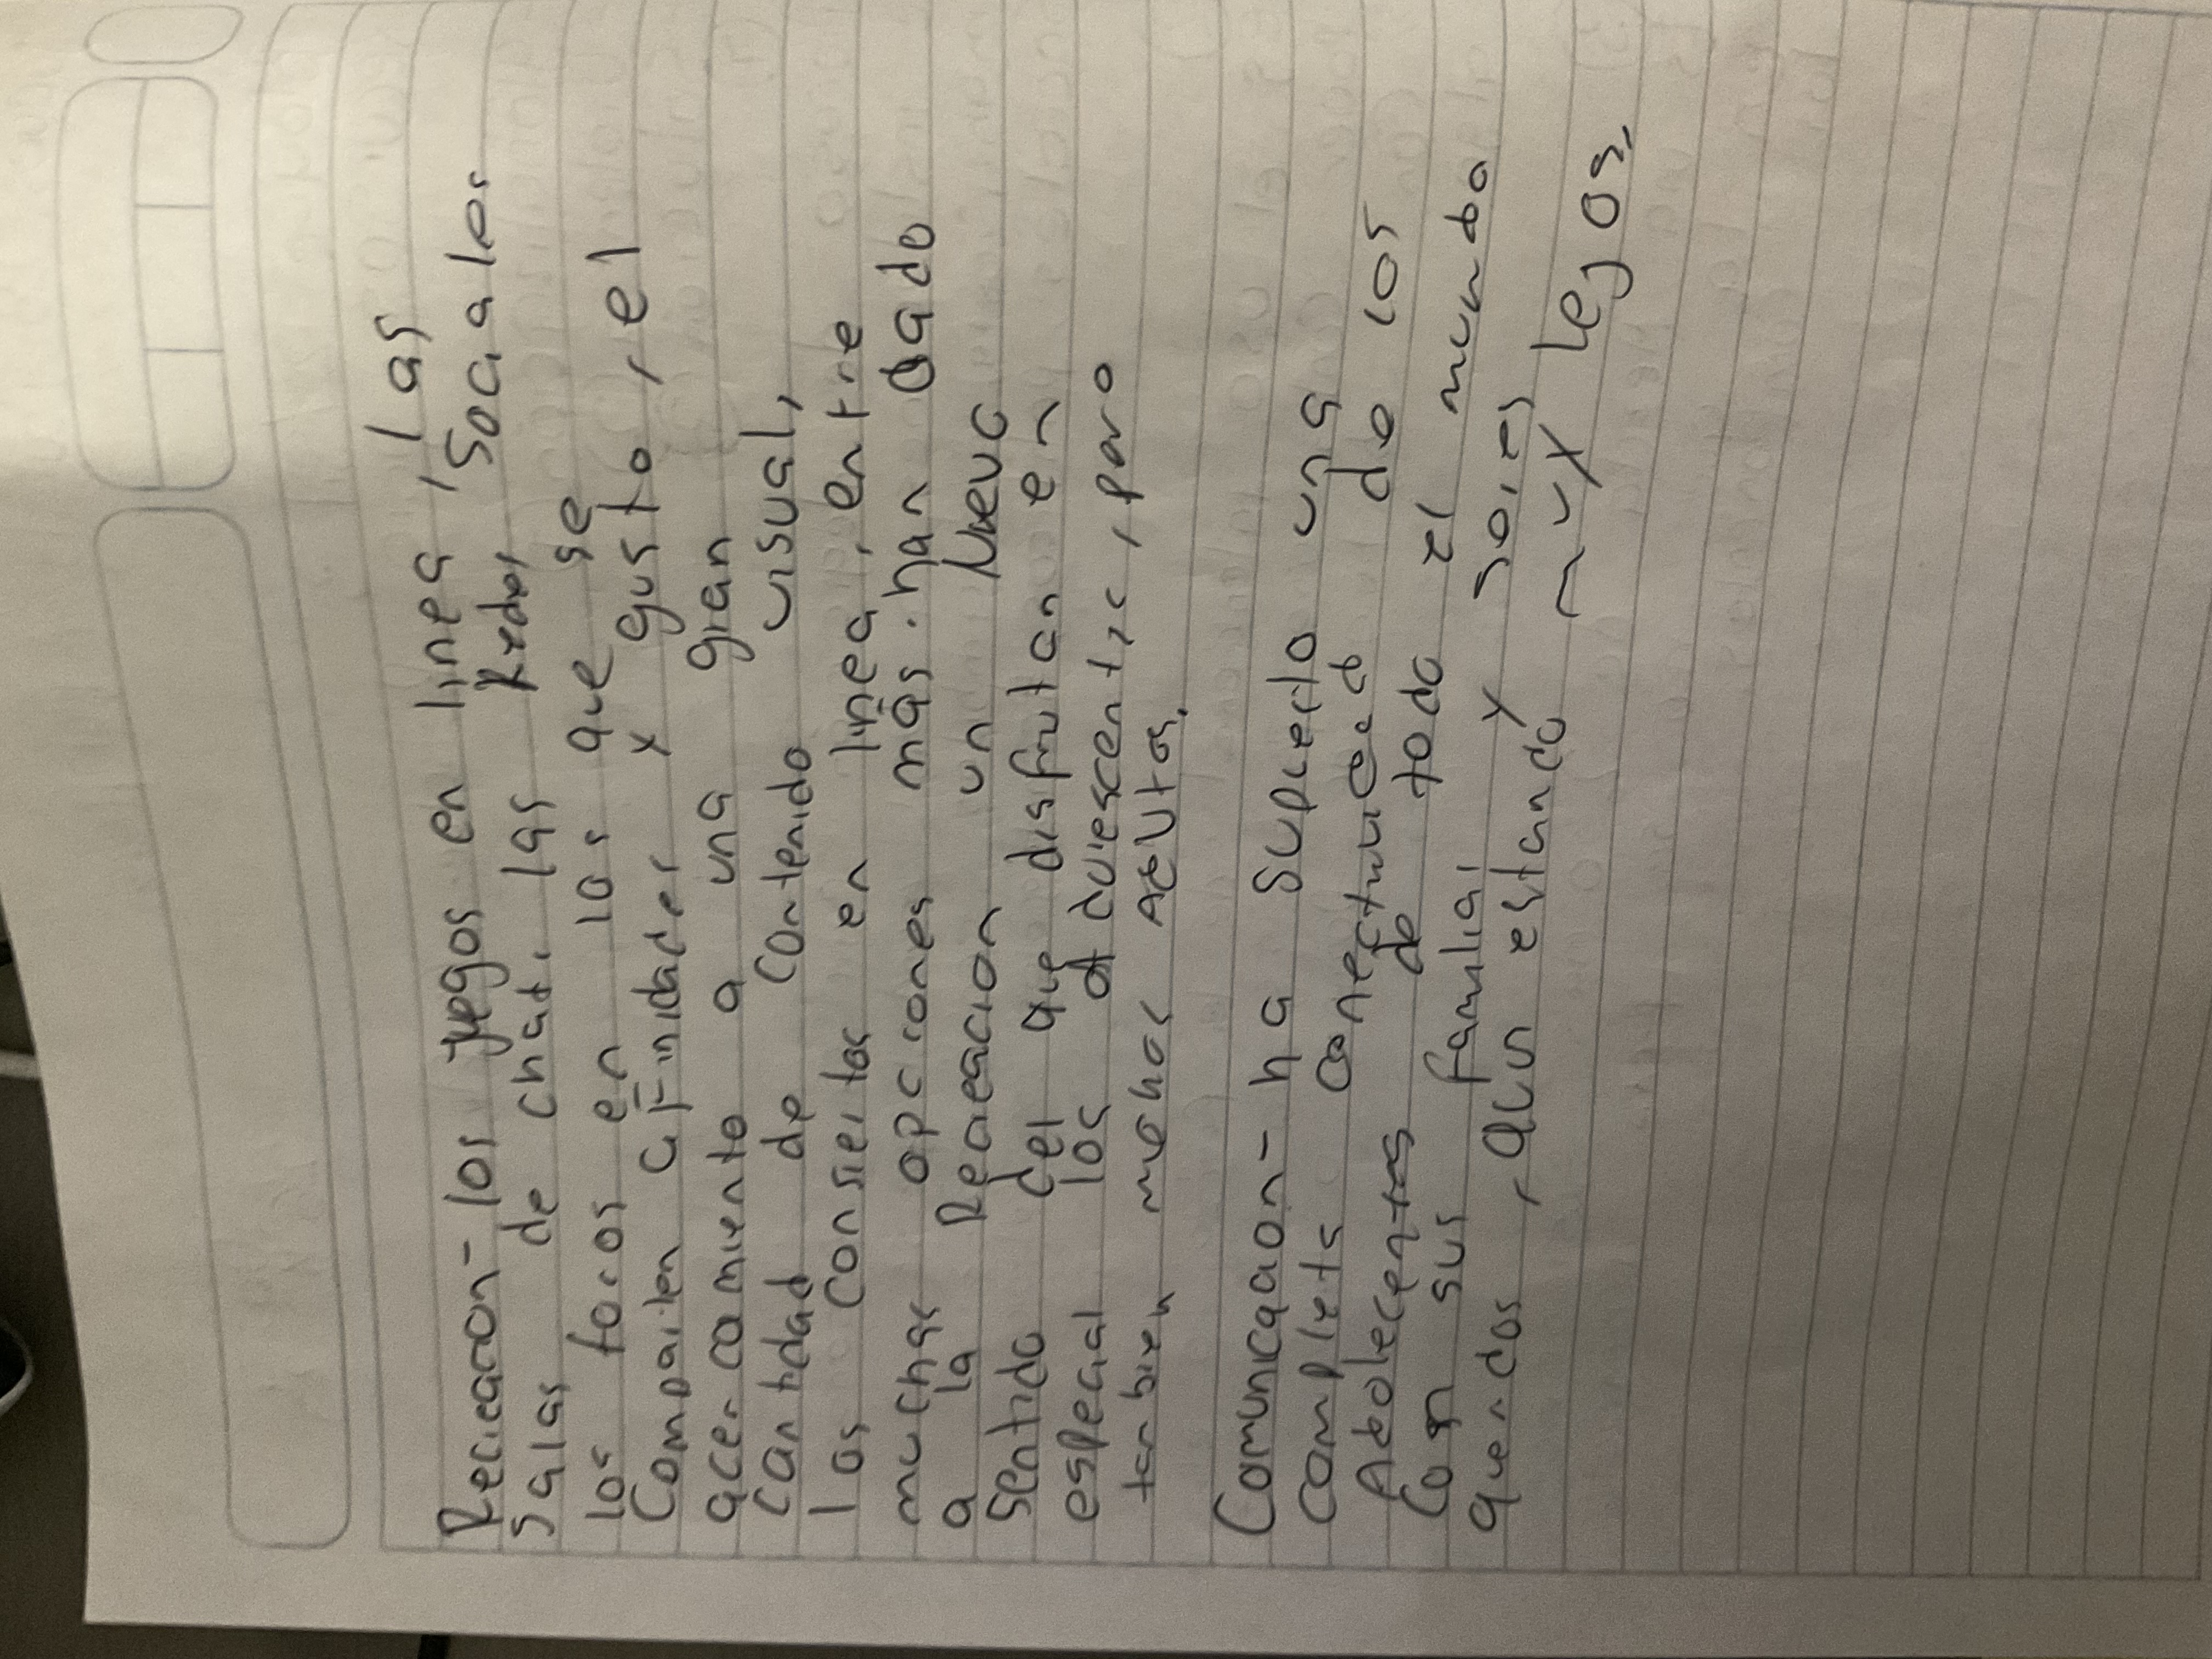 Recreacion- los juegos en linea, las
Salas de chat, las Redes Sociales
los foros en los que se
Comparten afinidades y gusto, el
acercamiento a una gran
Cantidad de contenido visual,
los Consiertos en linea, entre
muchas opciones mas. han dado
a la Recreacion un Nuevo
Sentido del que disfrutan en
especial los adolescentes, pero
tambien muchos Adultos.
Comunicacion- ha supuesto una
completa conectividad de los
Adolecentes de todo el mundo
Con sus familiar y seres
queridos, aun estando muy lejos.